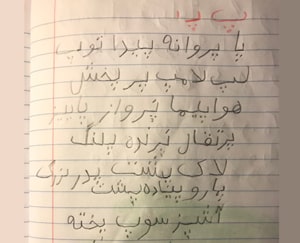 پ پـ
پا پروانه پیدا توپ
لپ لامپ پر پخش
هواپیما پرواز پاییز
پرتقال پرنده پلنگ
لاک پشت پدر بزرگ
پارو پیاده پشت
آشپز سوپ پخته